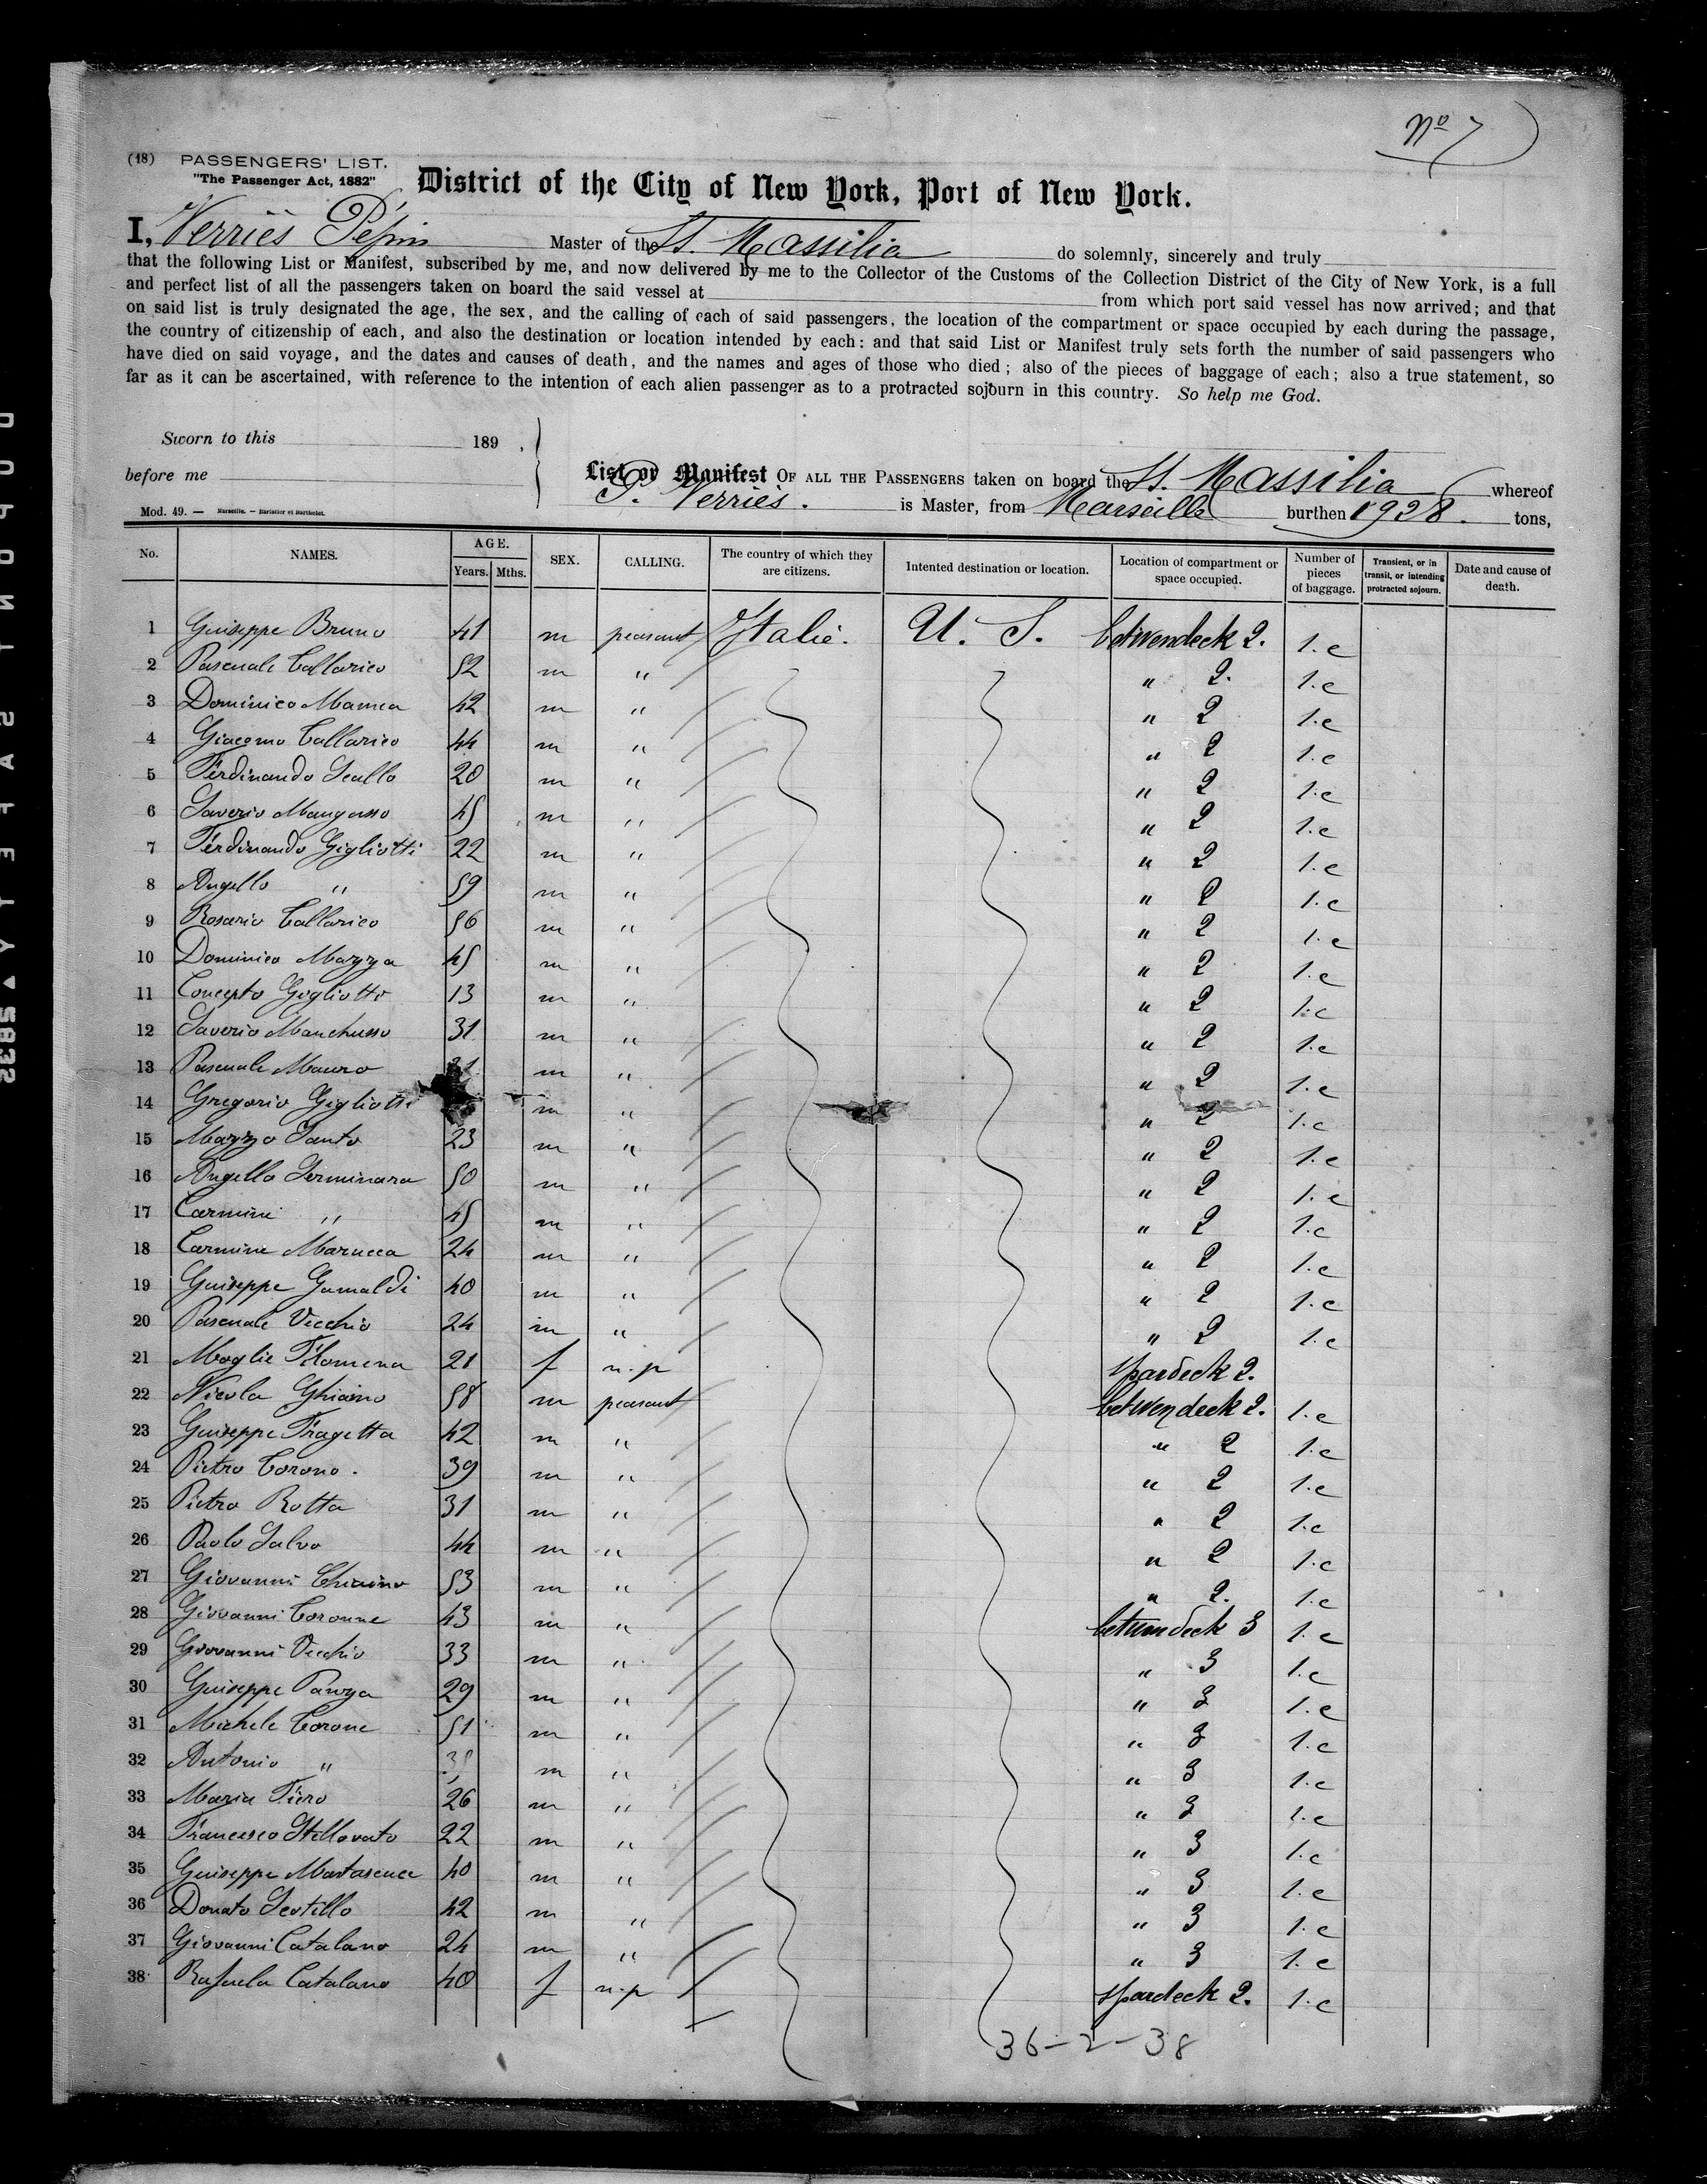 Nº 7
(18) PASSENGERS' LIST.
"The Passenger Act, 1882"
District of the City of New York, Port of New York.
I, Verriès Pépin Master of the St. Massilia do solemnly, sincerely and truly
that the following List or Manifest, subscribed by me, and now delivered by me to the Collector of the Customs of the Collection District of the City of New York, is a full
and perfect list of all the passengers taken on board the said vessel at from which port said vessel has now arrived; and that
on said list is truly designated the age, the sex, and the calling of each of said passengers, the location of the compartment or space occupied by each during the passage,
the country of citizenship of each, and also the destination or location intended by each: and that said List or Manifest truly sets forth the number of said passengers who
have died on said voyage, and the dates and causes of death, and the names and ages of those who died; also of the pieces of baggage of each; also a true statement, so
far as it can be ascertained, with reference to the intention of each alien passenger as to a protracted sojourn in this country. So help me God.
Sworn to this 189 ,
before me
List or Manifest OF ALL THE PASSENGERS taken on board the St. Massilia whereof
P. Verriès. is Master, from Marseille burthen 1928. tons,
Mod. 49. — Marseille. — Barlatier et Barthelet.
No. NAMES. AGE. Years. Mths. SEX. CALLING. The country of which they are citizens. Intented destination or location. Location of compartment or space occupied. Number of pieces of baggage. Transient, or in transit, or intending protracted sojourn. Date and cause of death.
1 Guiseppe Bruno 41 m peasant Italie. U. S. betwendeck 2. 1.c
2 Pascuale Tallarico 52 m " " 2. 1.c
3 Dominico Mamea 42 m " " 2 1.c
4 Giacomo Tallarico 44 m " " 2 1.c
5 Ferdinando Scallo 20 m " " 2 1.c
6 Saverio Mangusso 45 m " " 2 1.c
7 Ferdinando Gigliotti 22 m " " 2 1.c
8 Angello " 59 m " " 2 1.c
9 Rosario Tallarico 56 m " " 2 1.c
10 Dominico Mazza 45 m " " 2 1.c
11 Concepto Gigliotti 13 m " " 2 1.c
12 Saverio Manchusso 31 m " " 2 1.c
13 Pascuale Mauro m " " 2 1.c
14 Gregorio Gigliotti m " " 2 1.c
15 Mazzo Santo 23 m " " 2 1.c
16 Angello Serminara 50 m " " 2 1.c
17 Carmine " 45 m " " 2 1.c
18 Carmine Marucca 24 m " " 2 1.c
19 Guiseppe Gumaldi 40 m " " 2 1.c
20 Pascuale Vecchio 24 m " " 2 1.c
21 Moglie Filomena 21 f n.p spardeck 2.
22 Nicola Ghiaino 58 m peasant betwendeck 2. 1.c
23 Guiseppe Fragetta 42 m " " 2 1.c
24 Pietro Corono. 39 m " " 2 1.c
25 Pietro Rotta 31 m " " 2 1.c
26 Paolo Salvo 44 m " " 2 1.c
27 Giovanni Chiaino 53 m " " 2. 1.c
28 Giovanni Coronne 43 m " betwendeck 3 1.c
29 Giovanni Vecchio 33 m " " 3 1.c
30 Guiseppe Panza 29 m " " 3 1.c
31 Michele Corone 51 m " " 3 1.c
32 Antonio " m " " 3 1.c
33 Maria Fiero 26 m " " 3 1.c
34 Francesco Stellovato 22 m " " 3 1.c
35 Guiseppe Mastascuca 40 m " " 3 1.c
36 Donato Scotillo 42 m " " 3 1.c
37 Giovanni Catalano 24 m " " 3 1.c
38 Rafaela Catalano 40 f n.p spardeck 2. 1.c
36-2-38